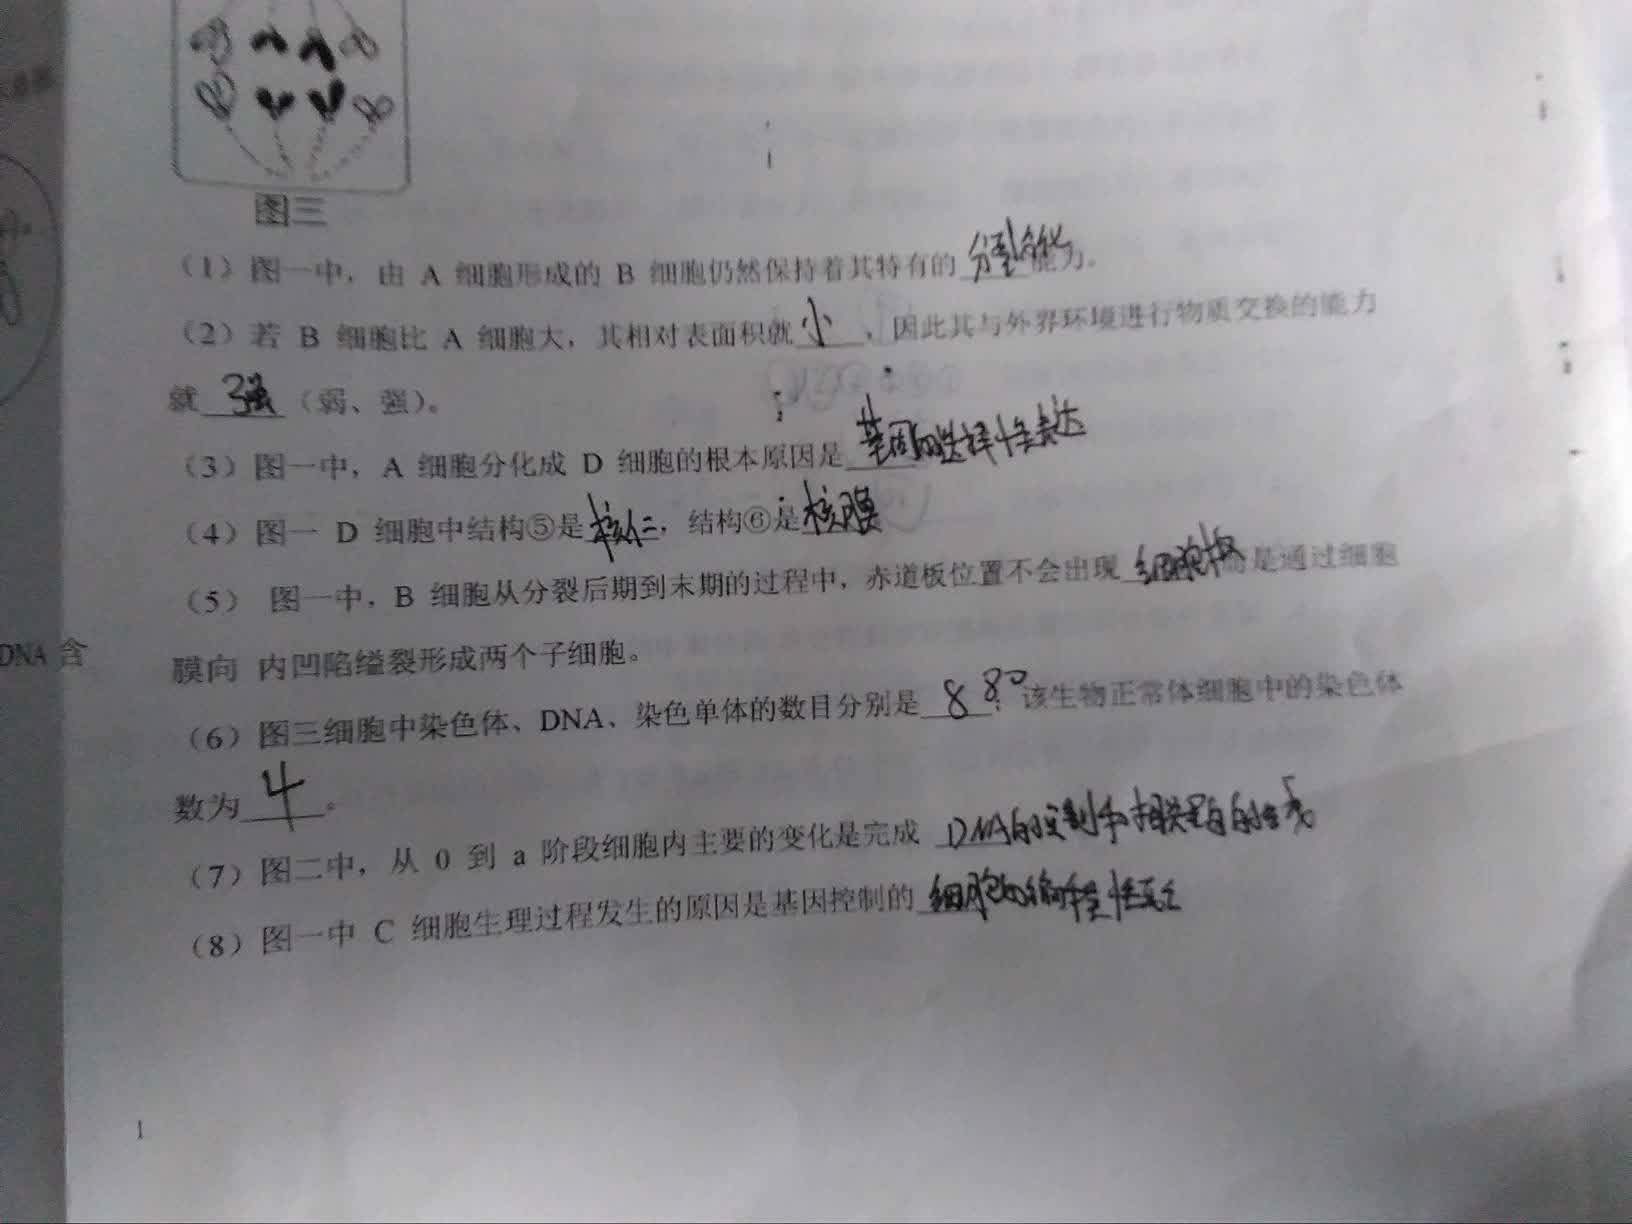 图三
(1) 图一中，由 A 细胞形成的 B 细胞仍然保持着其特有的 分裂分化 能力。
(2) 若 B 细胞比 A 细胞大，其相对表面积就 小 ，因此其与外界环境进行物质交换的能力
就 强 (弱、强)。
(3) 图一中，A 细胞分化成 D 细胞的根本原因是 基因的选择性表达
(4) 图一 D 细胞中结构⑤是 核仁，结构⑥是 核膜
(5) 图一中，B 细胞从分裂后期到末期的过程中，赤道板位置不会出现 细胞板 而是通过细胞
DNA 含
膜向 内凹陷缢裂形成两个子细胞。
(6) 图三细胞中染色体、DNA、染色单体的数目分别是 8 8 0；该生物正常体细胞中的染色体
数为 4 。
(7) 图二中，从 0 到 a 阶段细胞内主要的变化是完成 DNA的复制和相关蛋白的合成
(8) 图一中 C 细胞生理过程发生的原因是基因控制的 细胞的编程性死亡
1